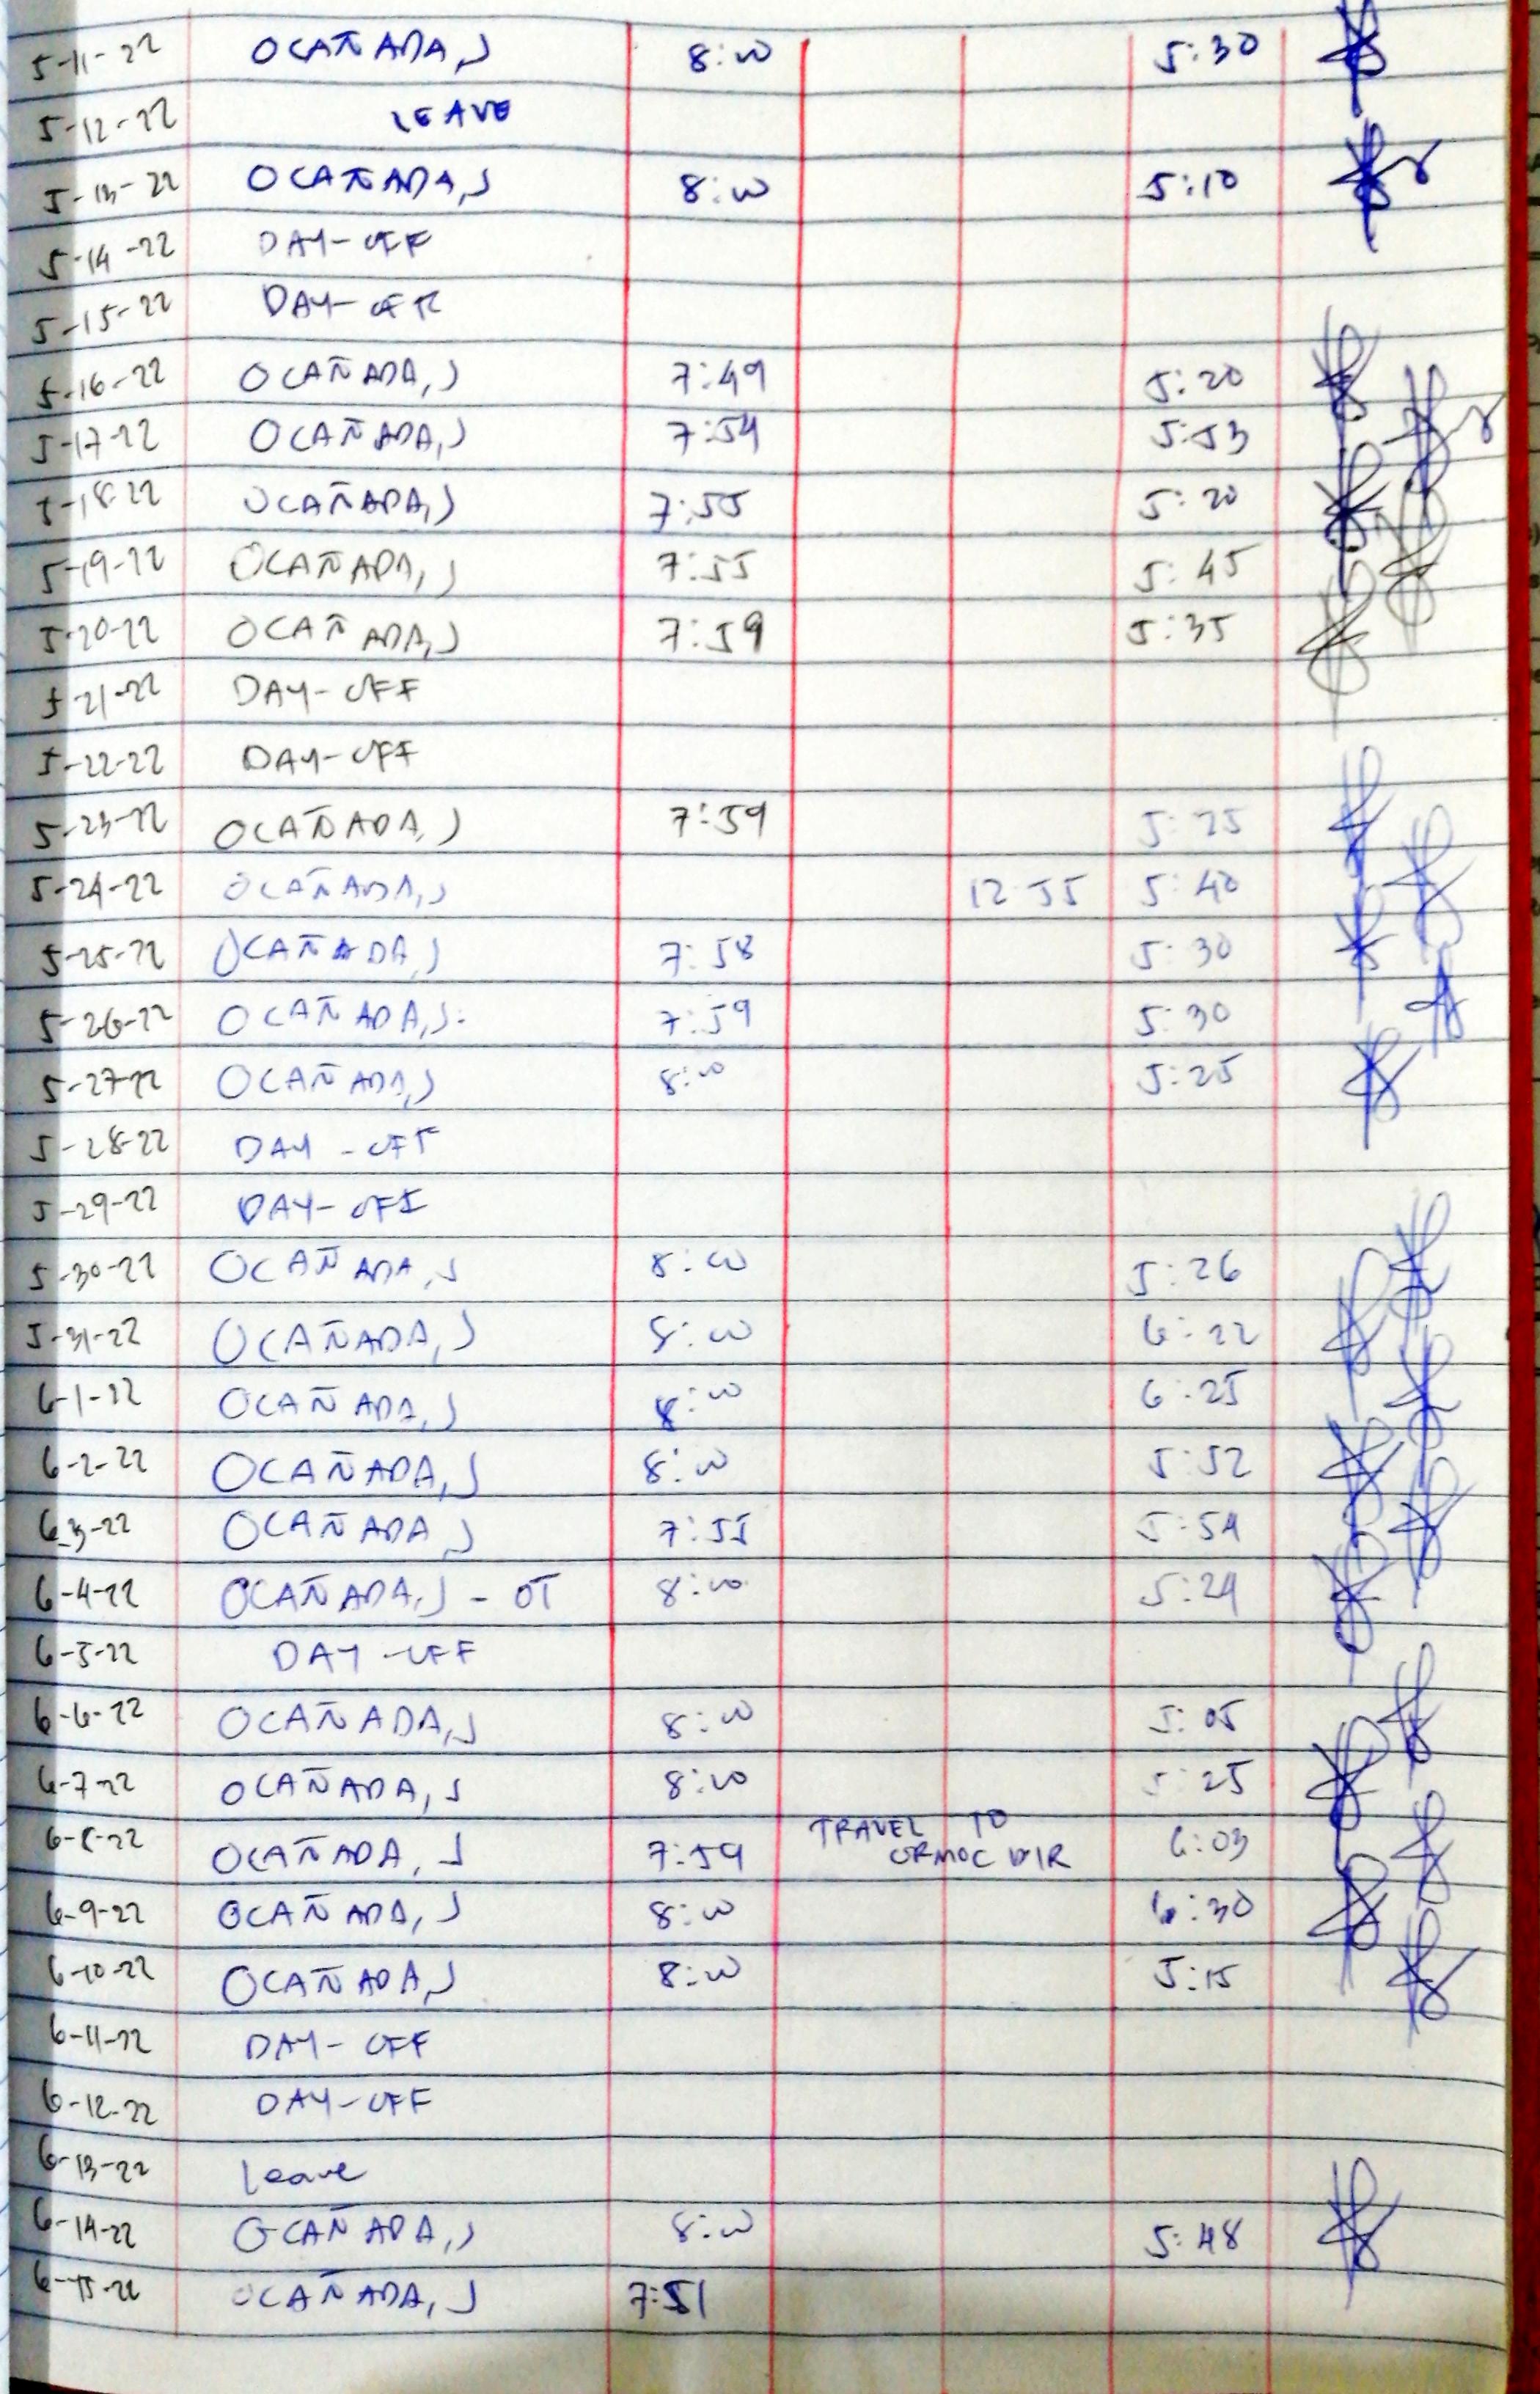 5-11-22 OCAÑADA, J 8:00 5:30
5-12-22 LEAVE
5-13-22 OCAÑADA, J 8:00 5:10
5-14-22 DAY-OFF
5-15-22 DAY-OFF
5-16-22 OCAÑADA, J 7:49 5:20
5-17-22 OCAÑADA, J 7:54 5:53
5-18-22 OCAÑADA, J 7:55 5:20
5-19-22 OCAÑADA, J 7:55 5:45
5-20-22 OCAÑADA, J 7:59 5:35
5-21-22 DAY-OFF
5-22-22 DAY-OFF
5-23-22 OCAÑADA, J 7:59 5:25
5-24-22 OCAÑADA, J 12 55 5:40
5-25-22 OCAÑADA, J 7:58 5:30
5-26-22 OCAÑADA, J. 7:59 5:30
5-27-22 OCAÑADA, J 8:00 5:25
5-28-22 DAY-OFF
5-29-22 DAY-OFF
5-30-22 OCAÑADA, J 8:00 5:26
5-31-22 OCAÑADA, J 8:00 6:22
6-1-22 OCAÑADA, J 8:00 6:25
6-2-22 OCAÑADA, J 8:00 5:52
6-3-22 OCAÑADA, J 7:55 5:54
6-4-22 OCAÑADA, J - OT 8:00 5:24
6-5-22 DAY-OFF
6-6-22 OCAÑADA, J 8:00 5:05
6-7-22 OCAÑADA, J 8:00 5:25
6-8-22 OCAÑADA, J 7:59 TRAVEL TO 6:03
ORMOC
6-9-22 OCAÑADA, J 8:00 6:30
6-10-22 OCAÑADA, J 8:00 5:15
6-11-22 DAY-OFF
6-12-22 DAY-OFF
6-13-22 Leave
6-14-22 OCAÑADA, J 8:00 5:48
6-15-22 OCAÑADA, J 7:51